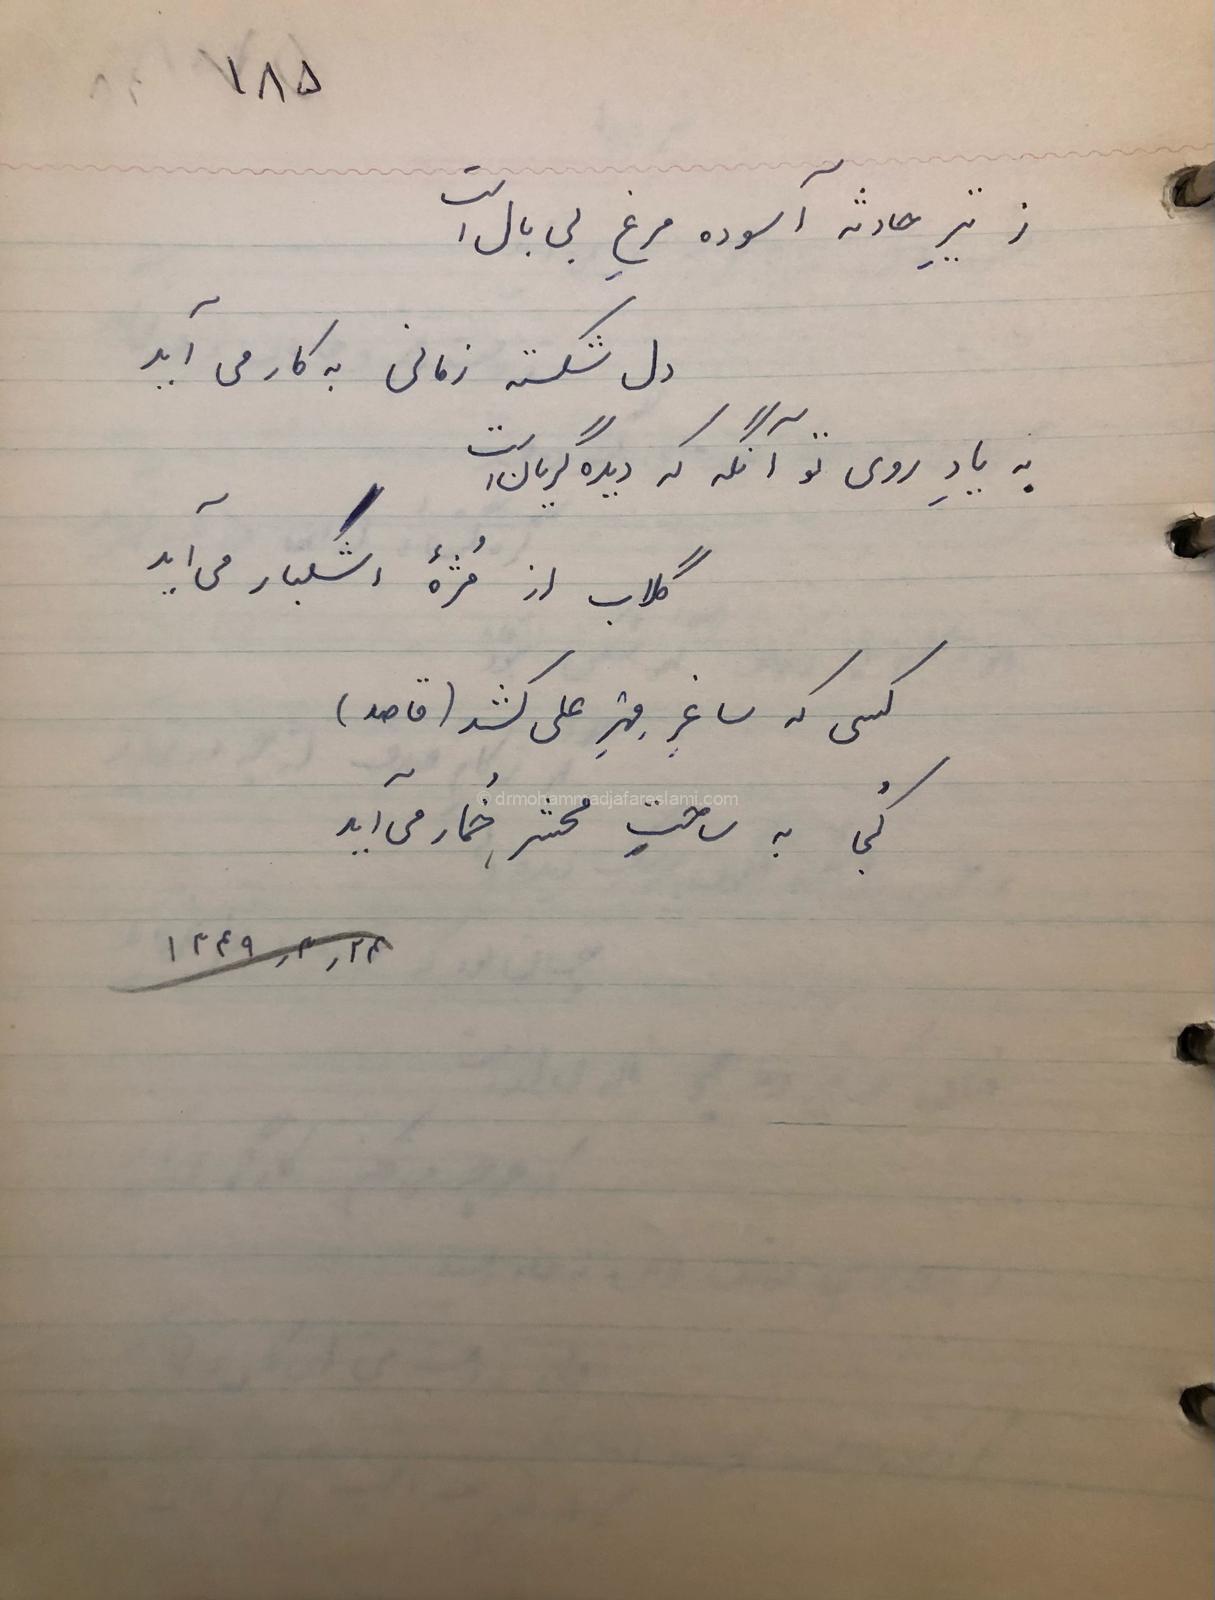 ۱۸۵
ز تیرِ حادثه آسوده مرغِ بی بال است
دل شکسته زمانی به کار می آید
به یادِ روی تو آنگه که دیده گریان است
گلاب از مُژهٔ اشکبار می‌آید
کسی که ساغرِ مِهرِ علی کشد (قاصد)
کُجا به ساحتِ محشر خُمار می‌آید
© drmohammadjafareslami.com
۱۳۴۹٫۳٫۲۴